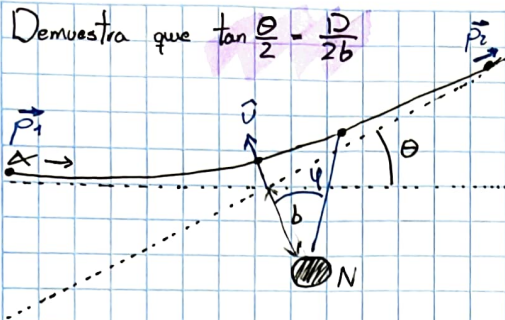 Demuestra que tan θ/2 = D/2b
p⃗₂
Û
p⃗₁
α →
θ
φ
b
N